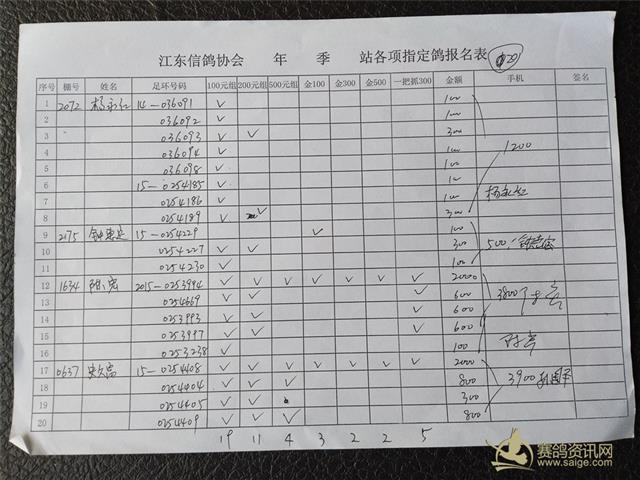 江东信鸽协会 年 季 站各项指定鸽报名表 20
序号 棚号 姓名 足环号码 100元组 200元组 500元组 金100 金300 金500 一把抓300 金额 手机 签名
1 2072 14-036091 ✓ 100
2 036092 ✓ 100
3 036093 ✓ ✓ 300
4 036094 ✓ 100 1200
5 036098 ✓ 100
6 15-0254185 ✓ 100
7 0254186 ✓ 100
8 0254189 ✓ ✓ 300
9 2175 15-0254229 ✓ 100
10 0254227 ✓ ✓ 300 500
11 0254230 ✓ 100
12 1634 2015-0253994 ✓ ✓ ✓ ✓ ✓ ✓ ✓ 2000
13 0254669 ✓ ✓ ✓ 600 3800
14 0253993 ✓ ✓ ✓ 600
15 0253997 ✓ ✓ ✓ 600
16 0253238 ✓ 100
17 0637 15-0254408 ✓ ✓ ✓ ✓ ✓ ✓ ✓ 2000
18 0254404 ✓ ✓ ✓ 800 3900
19 0254405 ✓ ✓ 300
20 0254409 ✓ ✓ ✓ 800
19 11 4 3 2 2 5
赛鸽资讯网
www.saige.com